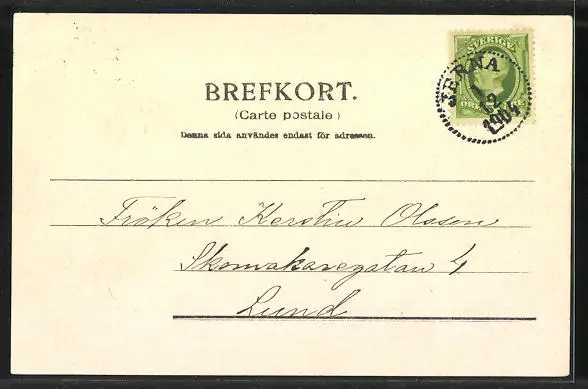 SVERIGE
JERNA
12
1904
ÖRE
BREFKORT.
(Carte postale)
Denna sida användes endast för adressen.
Fröken Kerstin Olssen
Skomakaregatan 4
Lund